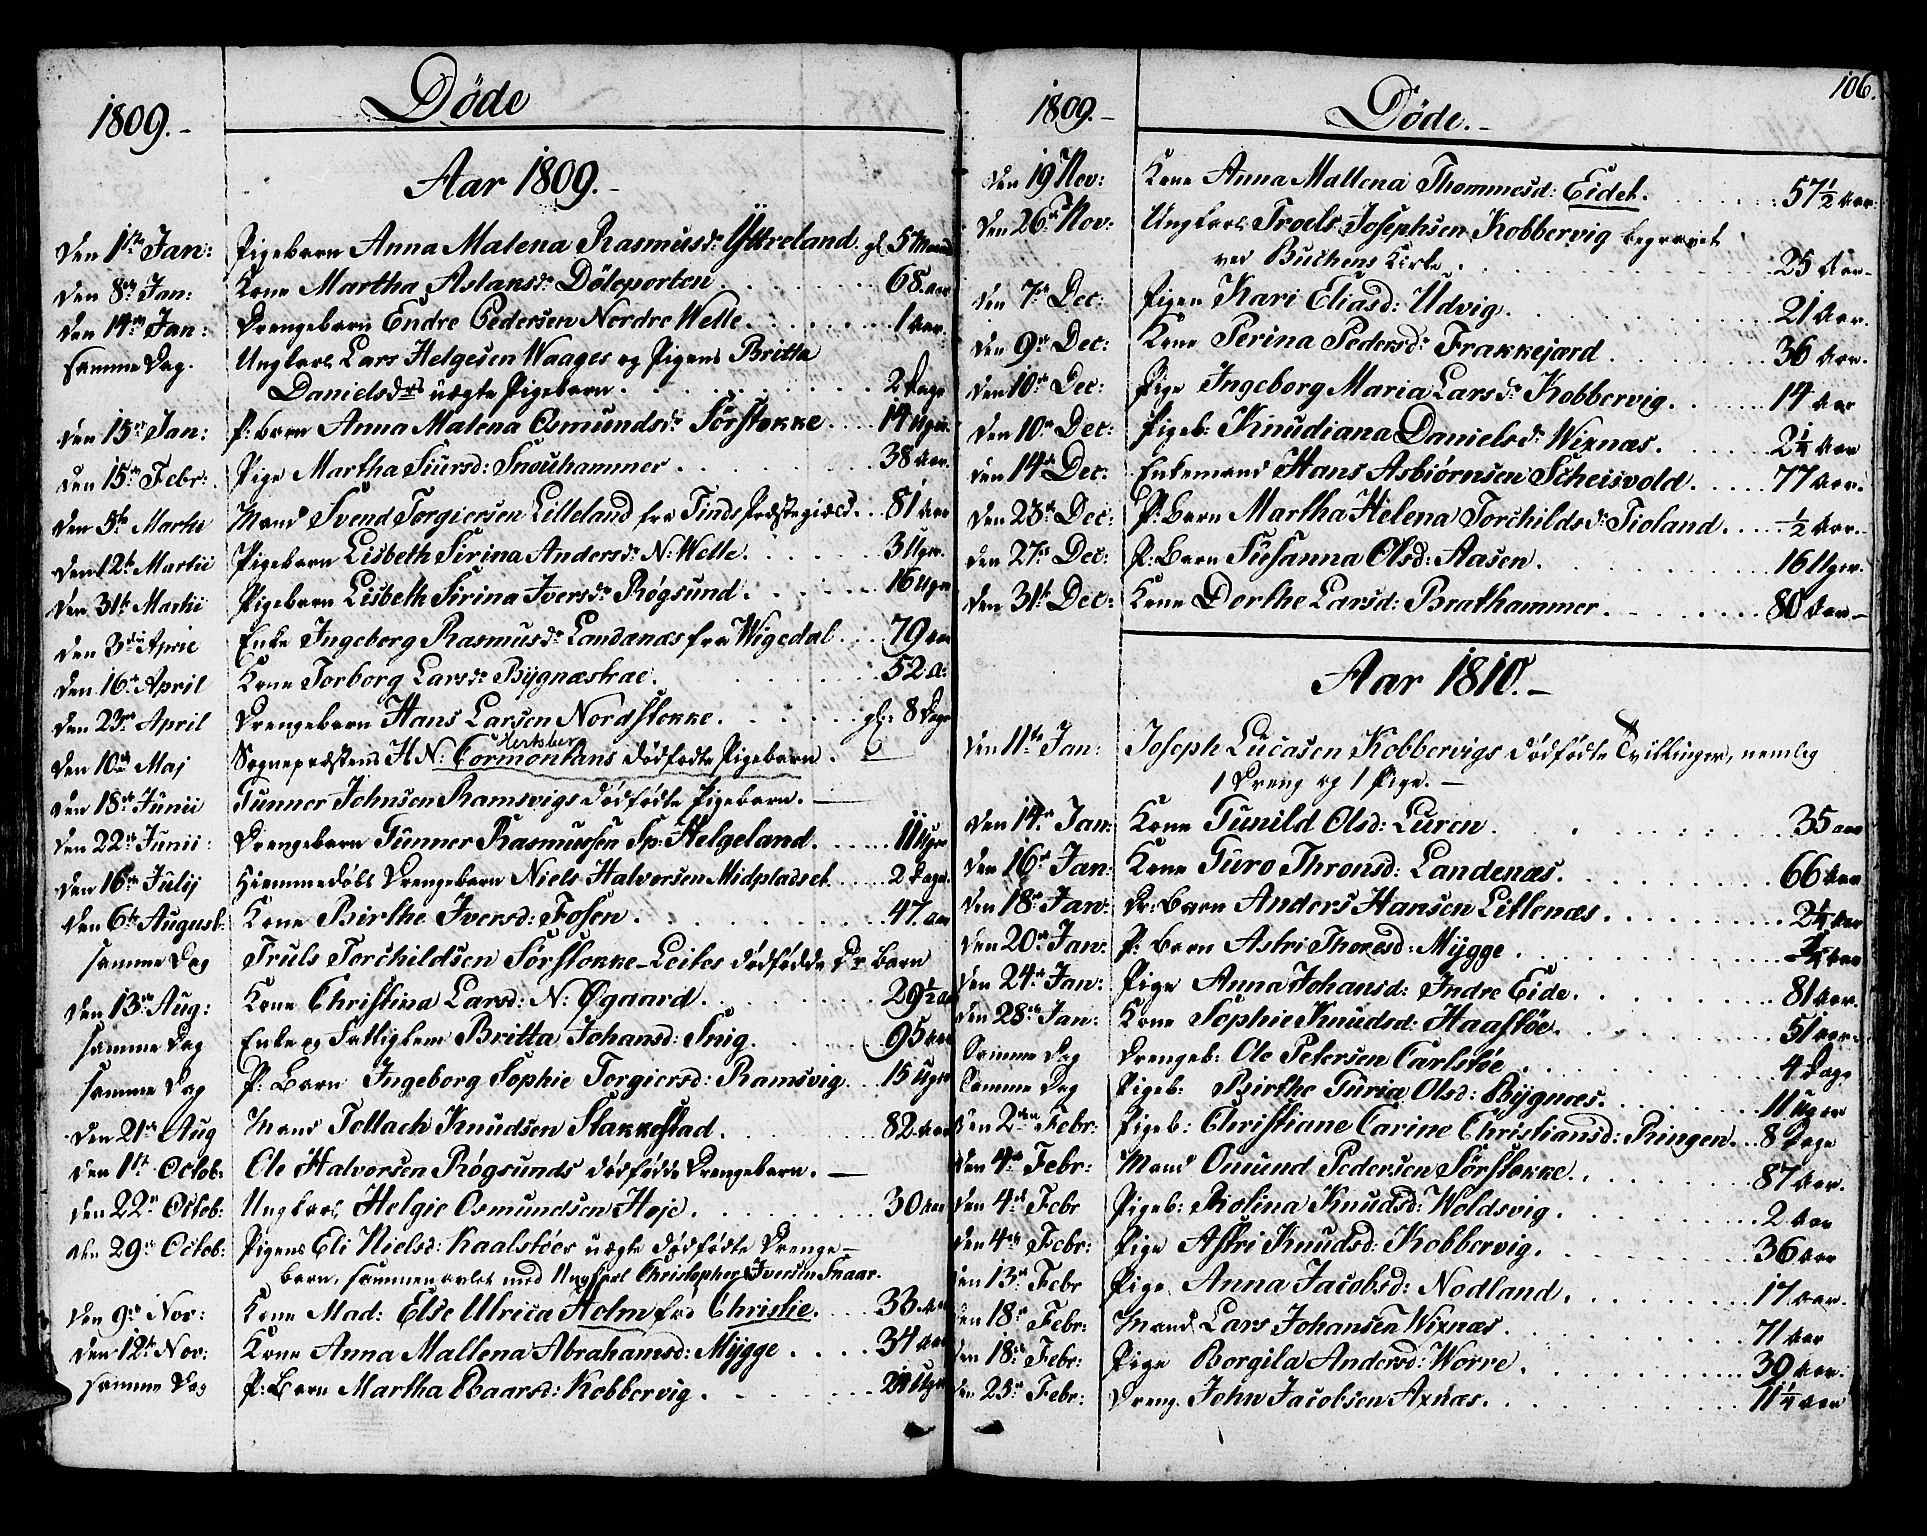 1809.-
Døde
Aar 1809.-
Den 1te Jan: Pigebarn Anna Malena Rasmusdr Yttreland gl. 5 Maand
Den 8de Jan: Kone Martha Aslansdr Døleporten. 68. aar
Den 14de Jan: Drengebarn Endre Pedersen Nordre Welle. 1 aar.
samme Dag. Ungkarl Lars Helgesen Waages og Pigens Britta
Danielsdrs uægte Pigebarn. 2 Dage
Den 15de Jan: P: barn Anna Malena Osmundsdr Sørstokke. 14 Uger.
Den 15de Febr: Pige Martha Siursd: Snouhammer. 38 aar.
Den 5te Martii Mand Svend Torgiersen Lilleland fra Finds Præstegield. 81 aar
Den 12te Martii Pigebarn Lisbeth Sirina Andersdr N: Welle. 3 Uger.
Den 31te Martii Pigebarn Lisbeth Sirina Iversdr Røgsund. 16 Uger
Den 3die Aprie Enke Ingeborg Rasmusdr Landanæs fra Wigedal. 79 aar
Den 16de April Kone Torborg Larsdr Bygnæstrae. 52 a:
Den 23de April Drengebarn Hans Larsen Nordstokke. gl: 8 Dage
Hertzberg
Den 10de Maj Sognepræstens H N: Cormontans dødfødte Pigebarn.
Den 18de Junii Gunner Johnsen Ramsvigs dødfødte Pigebarn. —
Den 22de Junii: Drengebarn Gunner Rasmussen Sp: Helgeland. 11 Uger
Den 16de Julij Hiemmedøbt Drengebarn Niels Halvorsen Midpladset. 2 Dage.
Den 6te August: Kone Birthe Iversd: Fosen. 47. aar
samme Dag Truls Torchildsen Sørstokke-Leites dødfødde Dr barn
Den 13de Aug: Kone Christina Larsd: N: Øgaard. 29½ a
samme Dag Enke og Fattiglem Britta Johansd: Snig. 95 aar
samme Dag P: Barn Ingeborg Sophie Torgiersd: Ramsvig. 15 Uger
Den 21de Aug Mand Tollach Knudsen Stakkestad. 82 aar
Den 1te Octob: Ole Halvorsen Røgsunds dødfødde Drengebarn. —
Den 22de Octob: Ungkarl Helgie Osmundsen Høje. 30 aar
Den 29de Octob: Pigens Eli Nielsd: Kaalstøes uægte dødfødte Drenge-
barn, sammenavlet med Ungkarl Christopher Iversen Snaar.
Den 9de Nov: Kone Mad: Else Ulrica Holm før Christie. 33 aar
Den 12te Nov: Kone Anna Mallena Abrahamsd: Mygge. 34 aar
samme Dag P: Barn Martha Baarsd: Kobbervig. 21 Uger
106.
1809.-
Døde.-
Den 19de Nov: Kone Anna Mallena Thommesd: Eidet. 57½ aar.
Den 26de Nov: Ungkarl Troels Josephsen Kobbervig begravet
ved Buckens Kirke. 25 Aar-
Den 7de Dec: Pigen Kari Eliasd: Udvig. 21 aar.
Den 9de Dec: Kone Perina Pedersdr Frakkejærd 36 aar.
Den 10de Dec: Pige Ingeborg Maria Larsdr Kobbervig. 14 aar
Den 10de Dec: Pigeb: Knudiana Danielsdr Wixnæs. 2¼ aar
Den 14de Dec: Enkemand Hans Asbiørnsen Scheisvold. 77 aar.
Den 23de Dec: P: Barn Martha Helena Torchildsdr Tioland. ½ aar.
Den 27de Dec: P: Barn Susanna Olsd: Aasen. 16 Uger.
Den 31te Dec: Kone Dorthe Larsd: Brathammer. 80 aar-
Aar 1810.-
Den 11te Jan: Joseph Lucasen Kobbervigs dødfødte Tvillinger, nemlig
1 Dreng og 1 Pige. —
Den 14de Jan: Kone Gunild Olsd: Luren. 35 aar
Den 16de Jan: Kone Guro Thronsd: Landenæs. 66 aar
Den 18de Jan: Dr: Barn Anders Hansen Litlenæs. 2¼ aar
Den 20de Jan: P: Barn Astri Thoresd: Mygge. ¾ aar
Den 24de Jan: Pige Anna Johansd: Indre Eide. 81 aar.
Den 28de Jan: Kone Sophie Knudsd: Haastøe. 51 aar.
Samme Dag Drengeb: Ole Petersen Carlstøe 4 Dage
Samme Dag Pigeb: Birthe Guria Olsd: Bygnæs. 11 Uger
Den 2den Febr: Pigeb: Christiane Carine Christiansd: Ringen. 8 Dage
Den 4de Febr: Mand Omund Pedersen Sørstokke. 87 aar.
Den 4de Febr Pigeb: Riolina Knudsd: Woldsvig. 2 aar
Den 4de Febr: Pige Astri Knudsd: Kobbervig. 36 aar
Den 13de Febr Pige Anna Jacobsd: Nodland. 17 aar.
Den 18de Febr: Mand Lars Johansen Wixnæs. 71 aar
Den 18de Febr: Pige Borgila Andersd: Worre. 39 aar.
Den 25de Febr: Dreng John Jacobsen Axnæs. 11¼ aar